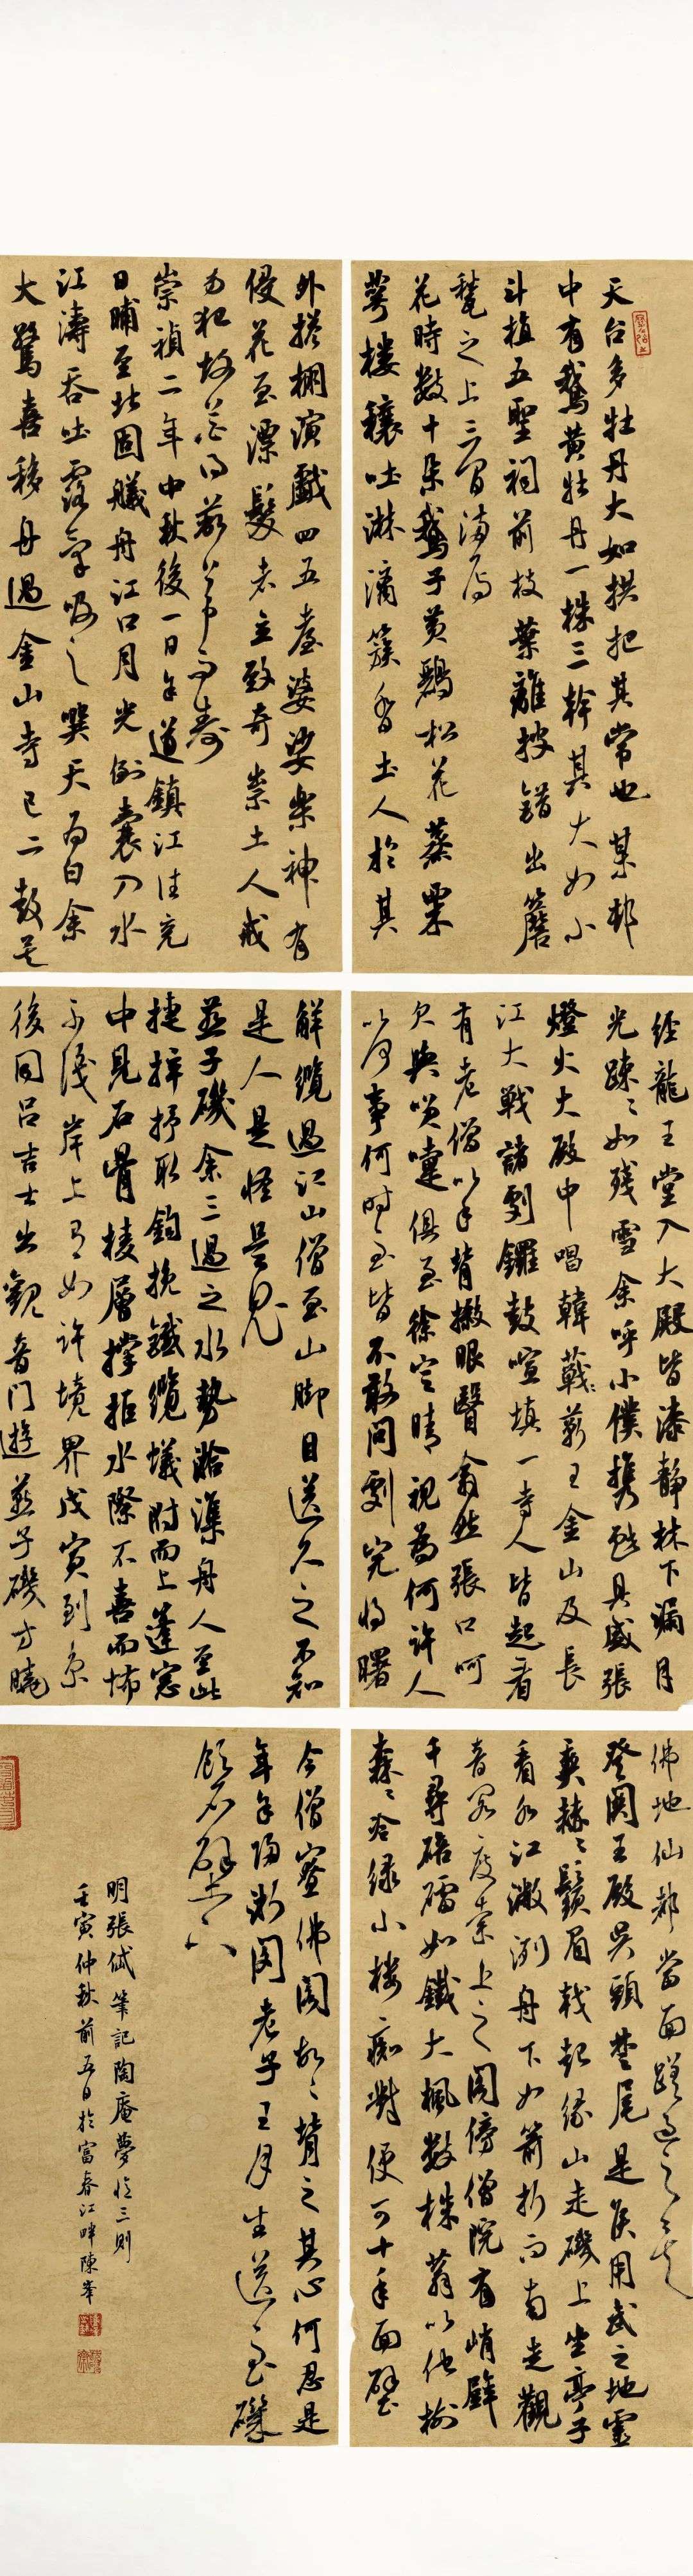 天台多牡丹大如拱把其常也某邨
中有鹅黄牡丹一株三幹其大如小
斗植五聖祠前枝葉離披錯出簷
甃之上三間滿焉
花時数十朵鹅子黄鸝松花蒸栗
萼楼穰吐淋漓簇沓土人於其
外搭棚演戲四五臺婆娑樂神有
侵花至漂髮者立致奇祟土人戒
勿犯故花得蔽芾而寿
崇禎二年中秋後一日余道鎮江往兗
日晡至北固艤舟江口月光倒囊入水
江濤吞吐露氣吸之噀天為白余
大驚喜移舟過金山寺已二鼓矣
经龍王堂入大殿皆漆静林下漏月
光踈々如残雪余呼小僕携戲具盛張
燈火大殿中唱韓蘄王金山及長
江大戰諸劇鑼鼓喧填一寺人皆起看
有老僧以手背摋眼翳翕然張口呵
欠與笑嚏俱至徐定睛視為何許人
以何事何时至皆不敢問劇完将曙
解缆過江山僧至山脚目送久之不知
是人是怪是鬼
燕子磯余三過之水勢湁潗舟人至此
捷捽抒取鈎挽鐵缆蟻附而上篷窓
中見石骨棱層撑拒水際不喜而怖
不識岸上有如許境界戊寅到京
後同吕吉士出觀音门遊燕子磯方曉
佛地仙都當面蹉過之矣
登関王殿吳頭楚尾是侯用武之地靈
爽赫々鬚眉戟起缘山走磯上坐亭子
看水江潎洌舟下如箭折而南走觀
音阁度索上之阁傍僧院有峭壁
千尋碚礌如鐵大楓数株蓊以他樹
森々冷绿小楼痴對便可十年面壁
今僧寮佛阁故々背之其心何忍是
年余归浙闵老子王月生送至磯
飲石壁下
明張岱筆記陶庵夢憶三則
壬寅仲秋前五日於富春江畔陳峯